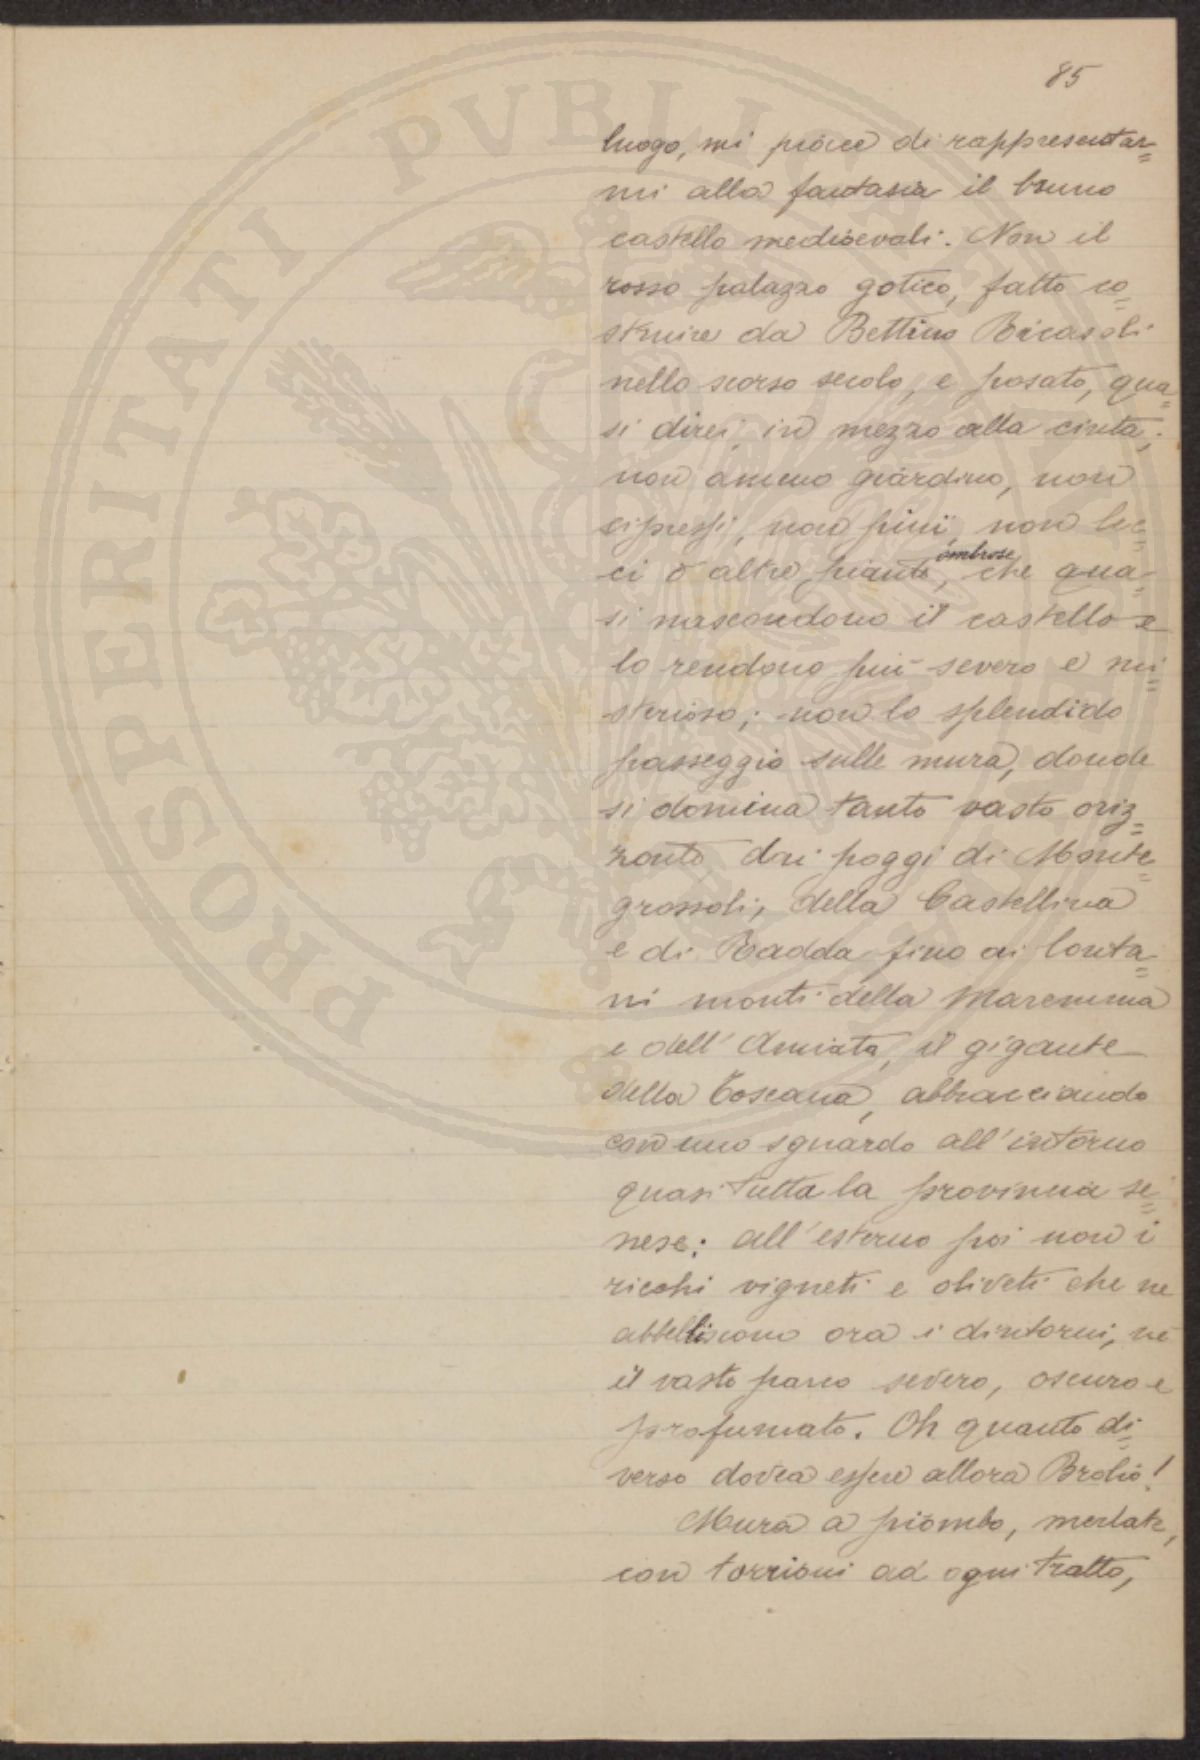 85
luogo, mi piace di rappresentar=
mi alla fantasia il bruno
castello medioevali. Non il
rosso palazzo gotico, fatto co=
struire da Bettino Ricasoli
nello scorso secolo, e posato, qua=
si direi, in mezzo alla cinta;
non ameno giardino, non
cipressi, non pini, non lec=
ci o altre piante ombrose, che qua=
si nascondono il castello e
lo rendono più severo e mi=
sterioso; non lo splendido
passeggio sulle mura, donde
si domina tanto vasto oriz=
zonte, dai poggi di Monte=
grossoli, della Castellina
e di Radda fino ai lonta=
ni monti della Maremma
e dell'Amiata, il gigante
della Toscana, abbracciando
con uno sguardo all'intorno
quasi tutta la provincia se=
nese; all'esterno poi non i
ricchi vigneti e oliveti che ne
abbelliscono ora i dintorni, nè
il vasto parco severo, oscuro e
profumato. Oh quanto di=
verso dovea essere allora Brolio!
Mura a piombo, merlate,
con torrioni ad ogni tratto,
PROSPERITATI PVBLICAE